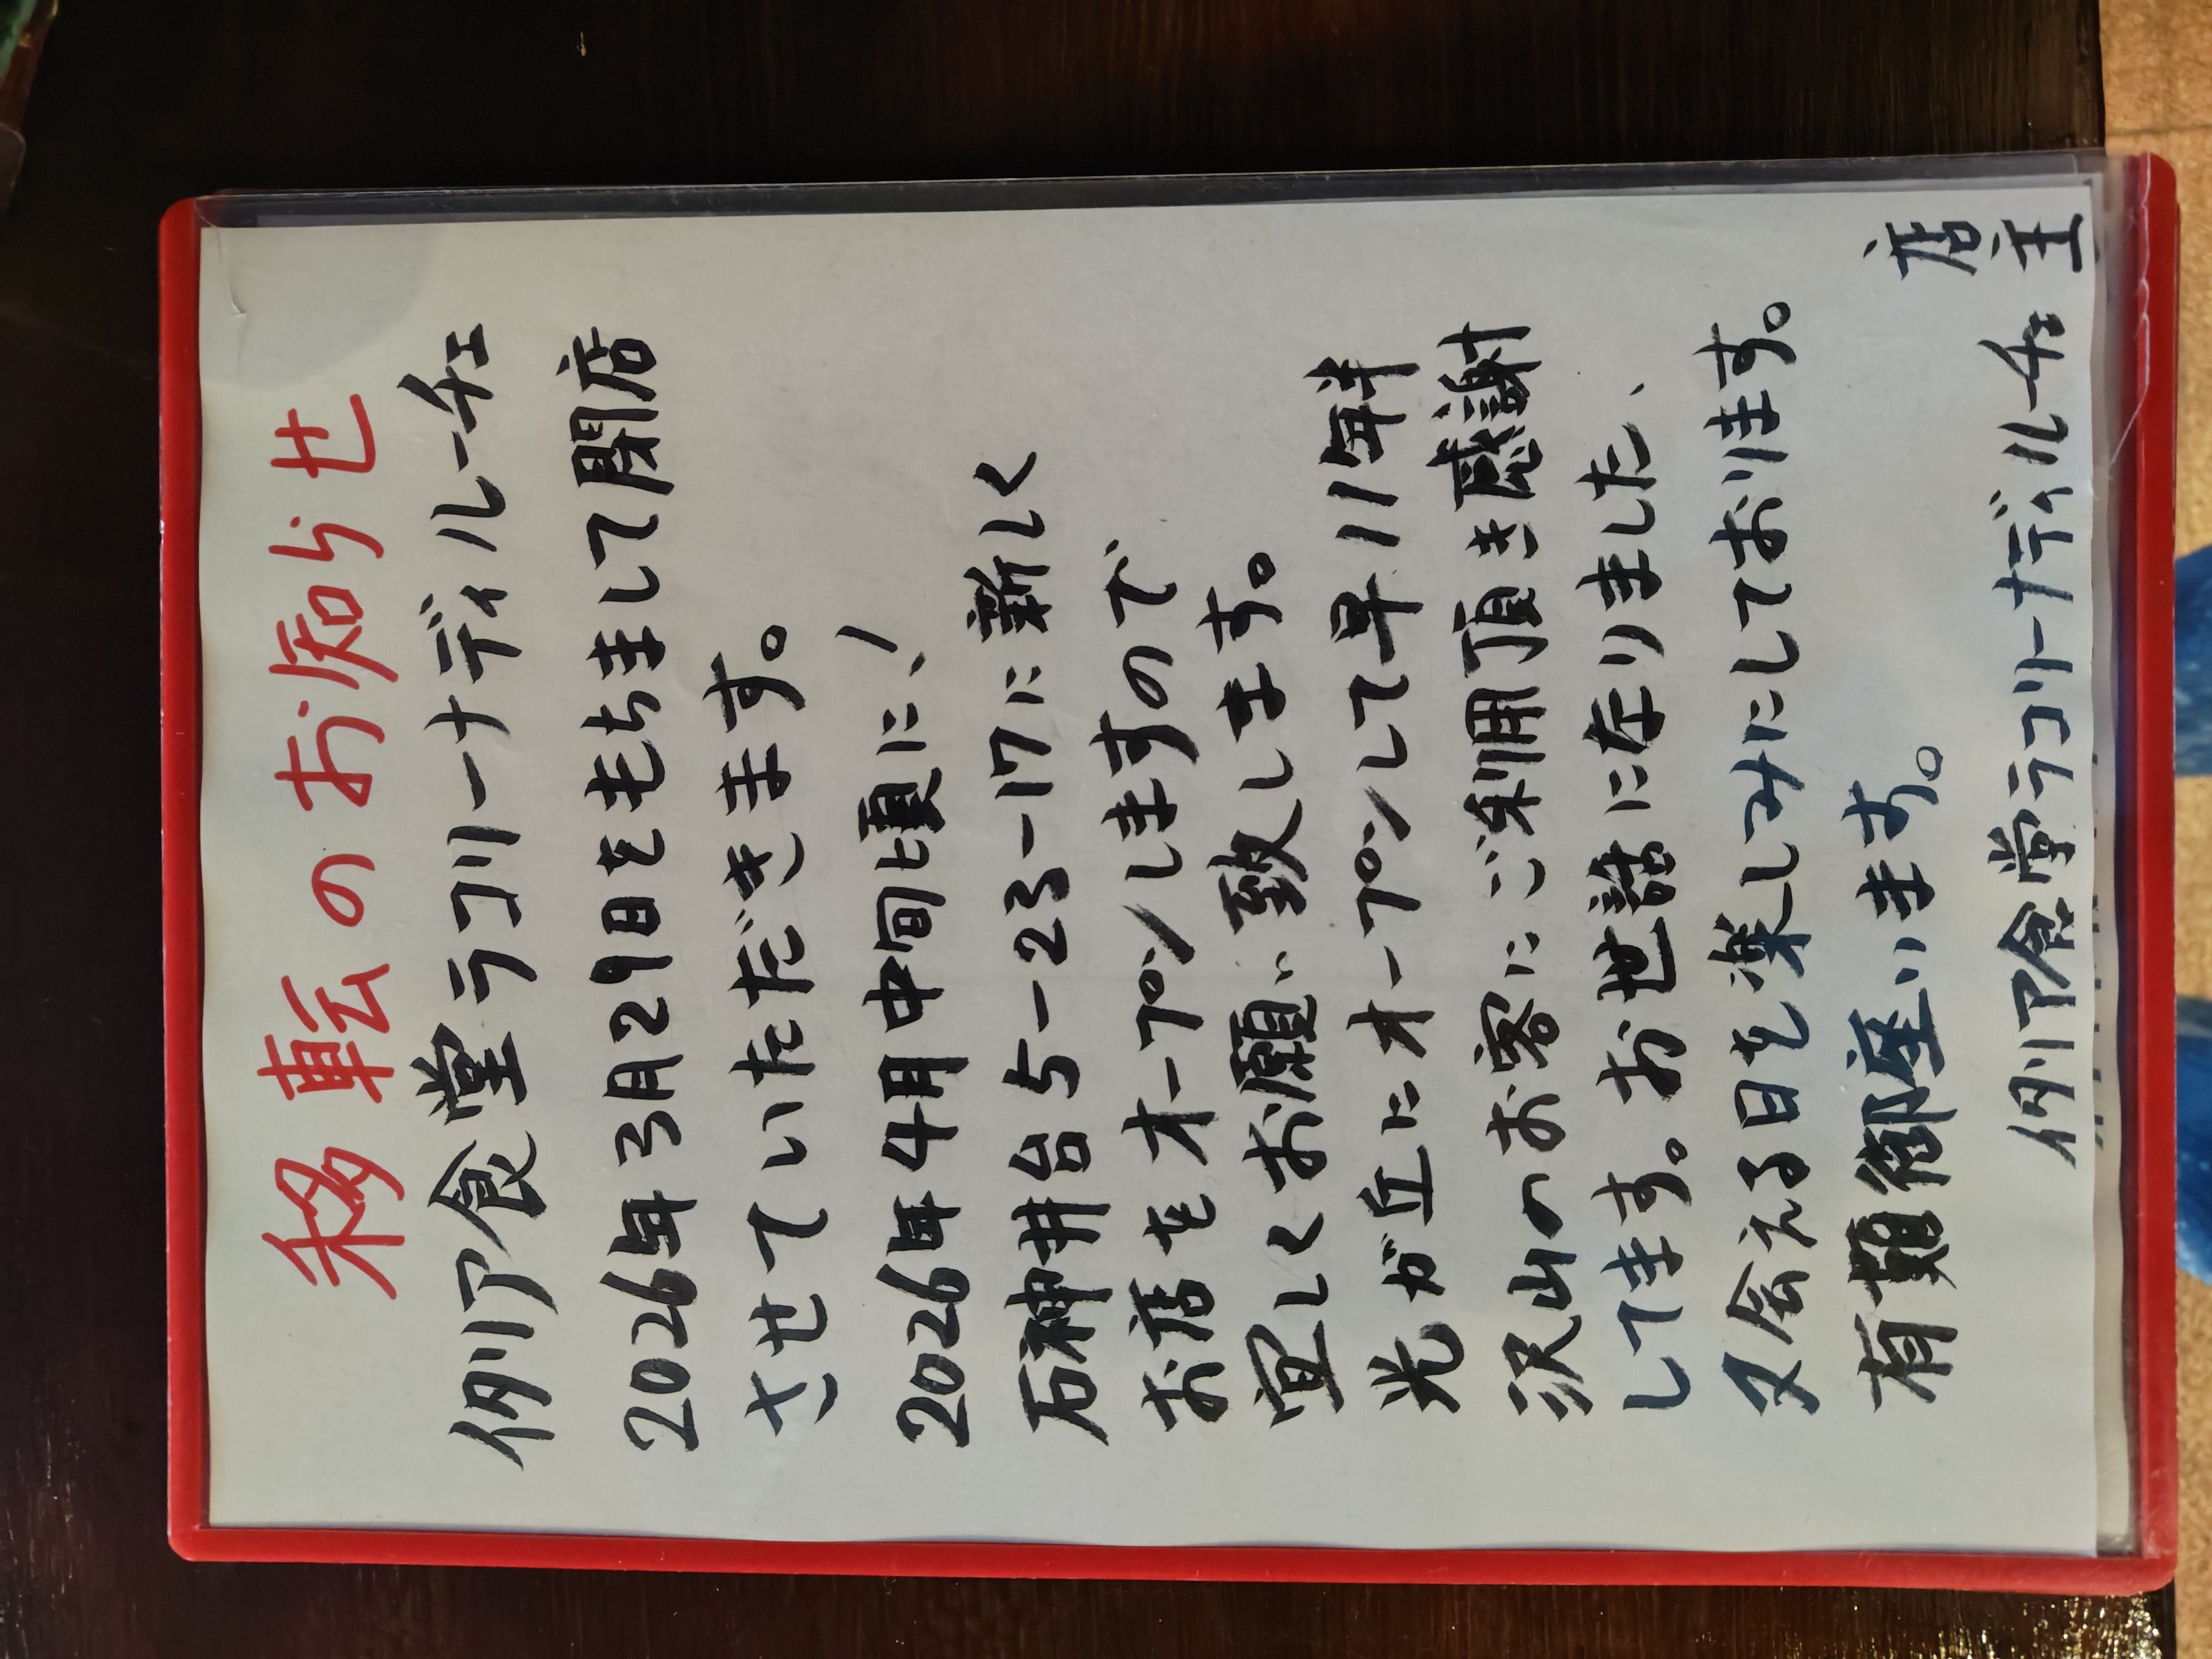 移転のお知らせ
イタリア食堂ラコリーナディルーチェ
2026年3月29日をもちまして閉店
させていただきます。
2026年4月中旬頃に！
石神井台5-23-17に新しく
お店をオープンしますので
宜しくお願い致します。
光が丘にオープンして早11年半
沢山のお客にご利用頂き感謝
してます。お世話になりました、
又会える日を楽しみにしております。
有難御座います。
イタリア食堂ラコリーナディルーチェ
店主